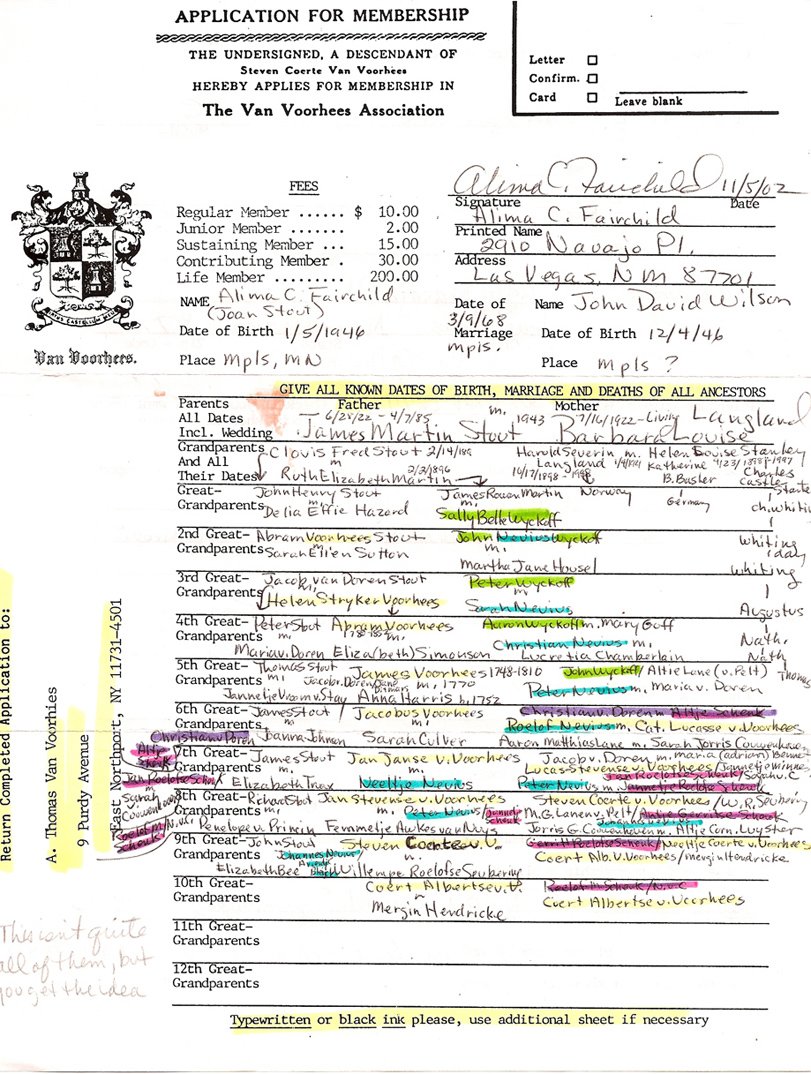 APPLICATION FOR MEMBERSHIP
THE UNDERSIGNED, A DESCENDANT OF
Steven Coerte Van Voorhees
HEREBY APPLIES FOR MEMBERSHIP IN
The Van Voorhees Association
Letter
Confirm.
Card
Leave blank
FEES
Regular Member ...... $ 10.00
Junior Member ....... 2.00
Sustaining Member ... 15.00
Contributing Member . 30.00
Life Member ......... 200.00
NAME Alima C. Fairchild
(Joan Stout)
Date of Birth 1/5/1946
Place Mpls, MN
Van Voorhees.
Alima C. Fairchild 11/5/02
Signature Date
Alima C. Fairchild
Printed Name
2910 Navajo Pl.
Address
Las Vegas, NM 87701
Date of Name John David Wilson
3/9/68
Marriage Date of Birth 12/4/46
mpls.
Place mpls ?
GIVE ALL KNOWN DATES OF BIRTH, MARRIAGE AND DEATHS OF ALL ANCESTORS
Parents Father Mother
All Dates 6/28/22 - 4/7/85 m. 1943 7/16/1922-Living Langland
Incl. Wedding James Martin Stout Barbara Louise
Grandparents Clovis Fred Stout Harold Severin m. Helen Louise Stanley
And All m Langland Katherine Charles
Their Dates Ruth Elizabeth Martin 2/3/1896 10/17/1898 - B. Basler Castle
Great- John Henry Stout James Rowan Martin Norway
Grandparents m. Germany
Delia Effie Hazard Sally Belle Wyckoff
2nd Great- Abram Voorhees Stout John Nevius Wyckoff Whiting
Grandparents m. m.
Sarah Ellen Sutton Martha Jane Housel
3rd Great- Jacob van Doren Stout Peter Wyckoff Whiting
Grandparents m. m
Helen Stryker Voorhees Sarah Nevius Augustus
4th Great- Peter Stout Abram Voorhees Aaron Wyckoff m. Mary Goff
Grandparents m. m. Christian Nevius m. Nath.
Maria v. Doren Eliza(beth) Simonson Lucretia Chamberlain Nath
5th Great- Thomas Stout James Voorhees 1748-1810 John Wyckoff / Altie Lane (v. Pelt) Thomas
Grandparents m. 1770 Peter Nevius m. Maria v. Doren
Anna Harris b. 1752
6th Great- James Stout / Jacobus Voorhees Christian v. Doren m. Altje Schenk
Grandparents m m. Roelof Nevius m. Cat. Lucasse v. Voorhees
Christian v Doren Joanna Johnson Sarah Culver Aaron Mathias Lane m. Sarah Jorris Couwenhoven
7th Great- James Stout Jan Janse v. Voorhees Jacob v. Doren m. Maria (adrian) Bennet
Grandparents m. m. Lucas Stevense v. Voorhees / Jannetje Minne
Elizabeth Truax Neeltje Nevius Jan Roelofse Schenk / Sarah v. C
Peter Nevius m. Jannetje Roelofse Schenk
8th Great- Richard Stout Jan Stevense v. Voorhees Steven Coerte v. Voorhees / W.R. Seubering
Grandparents m. m. Peter Nevius Jannetje Schenk M.G. Lane v. Pelt / Antje Gerritse Schenk
Penelope v. Princin Femmetje Aukes van Nuys Jorris G. Couwenhoven m. Altje Corn. Luyster
9th Great- John Stout Steven Coerte v. V. Gerrit Roelofse Schenk / Neeltje Coerte v. Voorhees
Grandparents Johannes Nevius Coert Alb. v. Voorhees / mergin Hendricke
Elizabeth Bee Willempe Roelofse Seubering
10th Great- Coert Albertse v. V. Roelof M Schenk / N. v C
Grandparents Coert Albertse v. Voorhees
Mergin Hendricke
11th Great-
Grandparents
12th Great-
Grandparents
Typewritten or black ink please, use additional sheet if necessary
Return Completed Application to:
A. Thomas Van Voorhies
9 Purdy Avenue
East Northport, NY 11731-4501
Altje Schenk
Jan Roelofse Schenk
m Sarah Couwenhoven
Roelof M. Schenk
This isn't quite
all of them, but
you get the idea